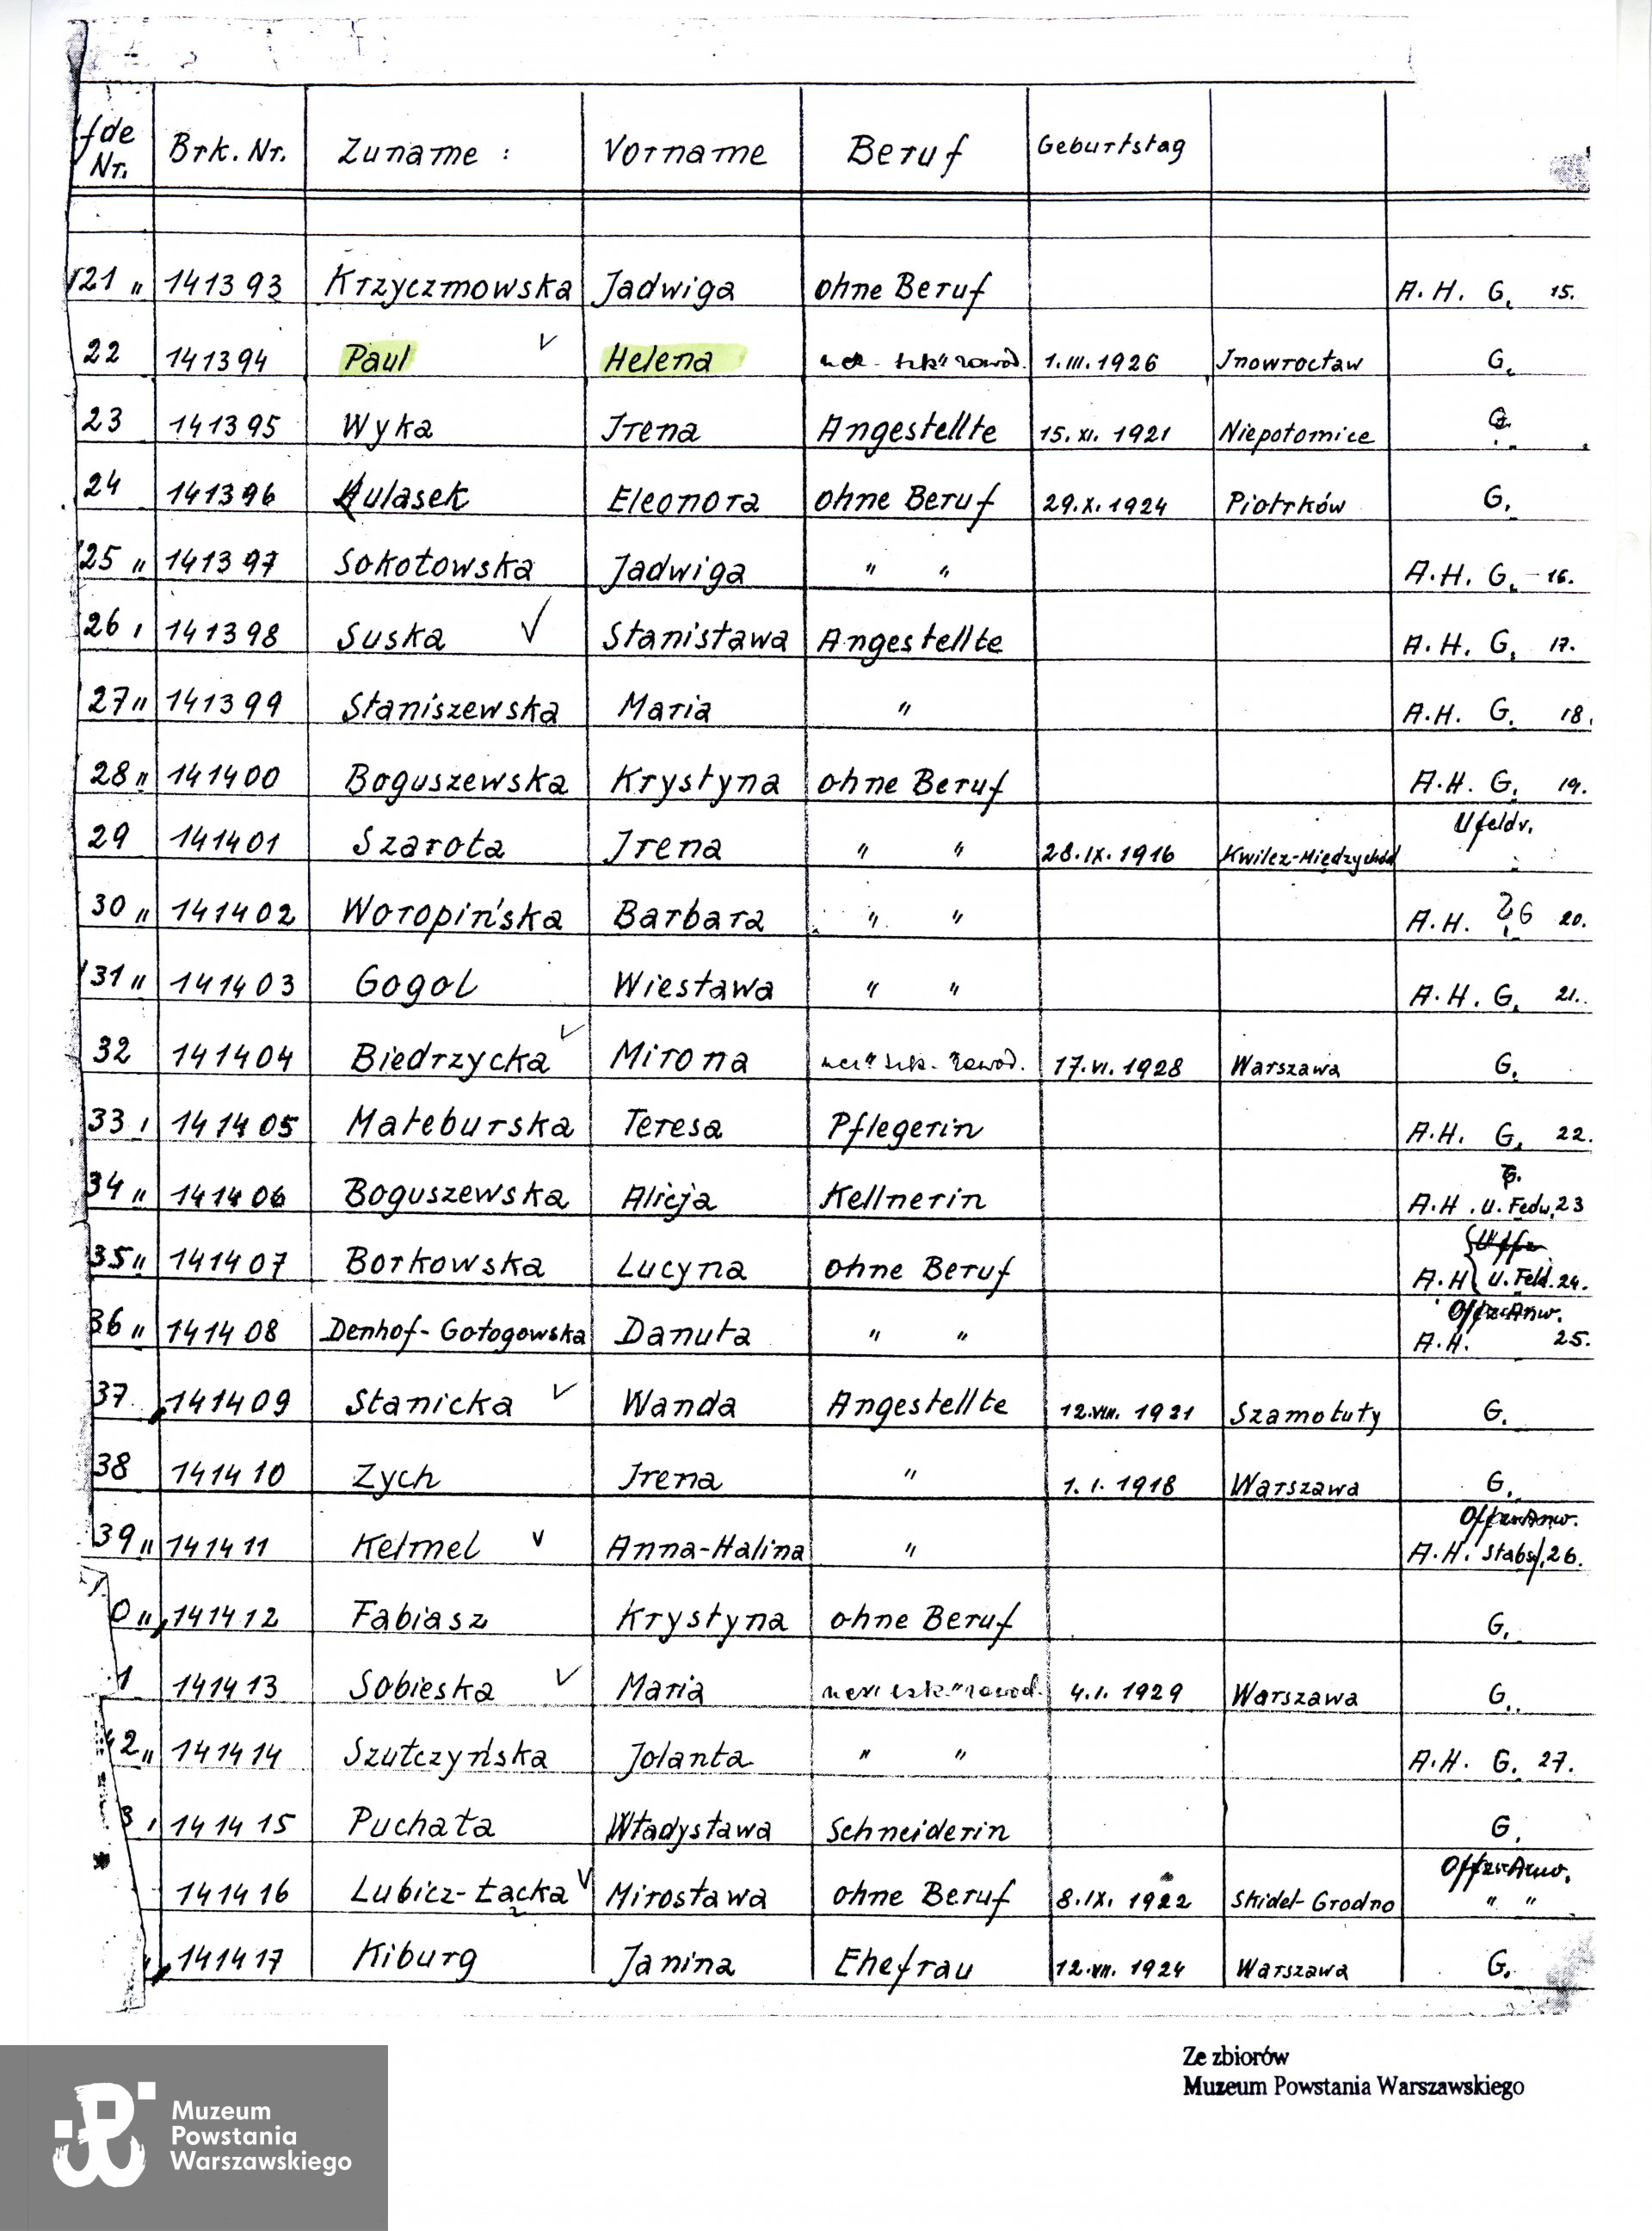 lfde Nr. Brk. Nr. Zuname : Vorname Beruf Geburtstag
121 " 141393 Krzyczmowska Jadwiga ohne Beruf A. H. G. 15.
22 141394 Paul Helena 1. III. 1926 Jnowrocław G.
23 141395 Wyka Jrena Angestellte 15. XI. 1921 Niepołomice G.
24 141396 Kulasek Eleonora ohne Beruf 29. X. 1924 Piotrków G.
125 " 141397 Sokołowska Jadwiga " " A. H. G. - 16.
26 , 141398 Suska ✓ Stanisława Angestellte A. H. G. 17.
27 " 141399 Staniszewska Maria " A. H. G. 18.
28 " 141400 Boguszewska Krystyna ohne Beruf A. H. G. 19.
29 141401 Szarota Jrena " " 28. IX. 1916 Kwilcz-Międzychód Ufeldv.
30 " 141402 Woropińska Barbara " " A. H. G 20.
131 " 141403 Gogol Wiesława " " A. H. G. 21.
32 141404 Biedrzycka ✓ Mirona 17. VI. 1928 Warszawa G.
33 , 141405 Małeburska Teresa Pflegerin A. H. G. 22.
34 " 141406 Boguszewska Alicja Kellnerin G. A. H. U. Fedw. 23
35 " 141407 Borkowska Lucyna ohne Beruf A. H U. Feld. 24.
36 " 141408 Denhof-Gołogowska Danuta " " Offz.Anw. A. H. 25.
37 141409 Stanicka ✓ Wanda Angestellte 12. VIII. 1921 Szamotuły G.
38 141410 Zych Jrena " 1. I. 1918 Warszawa G.
39 " 141411 Kełmel ✓ Anna-Halina " Offz.Anw. A. H. Stabsf. 26.
0 " 141412 Fabiasz Krystyna ohne Beruf G.
1 141413 Sobieska ✓ Maria 4. I. 1929 Warszawa G.
42 " 141414 Szułczyńska Jolanta " " A. H. G. 27.
3 , 141415 Puchała Władysława Schneiderin G.
141416 Lubicz-Łącka ✓ Mirosława ohne Beruf 8. IX. 1922 Skideł-Grodno Offz.Anw. " "
" 141417 Kiburg Janina Ehefrau 12. VII. 1924 Warszawa G.
Ze zbiorów
Muzeum Powstania Warszawskiego
Muzeum
Powstania
Warszawskiego